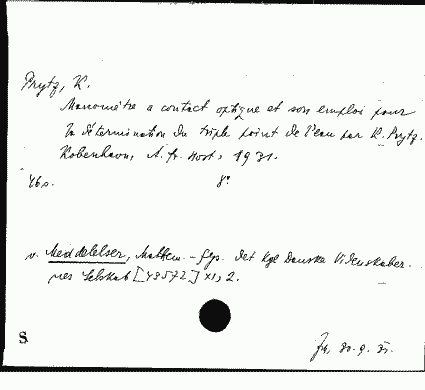 Prytz, K.
Manomètre a contact optique et son emploi pour
la détermination du triple point de l'eau par K. Prytz.
København, A. fr. Høst, 1931.
46 s. 8º
v. Meddelelser, Mathem.-fys. Det kgl Danske Videnskaber-
nes Selskab [48572] XI, 2.
S
30.9.31.